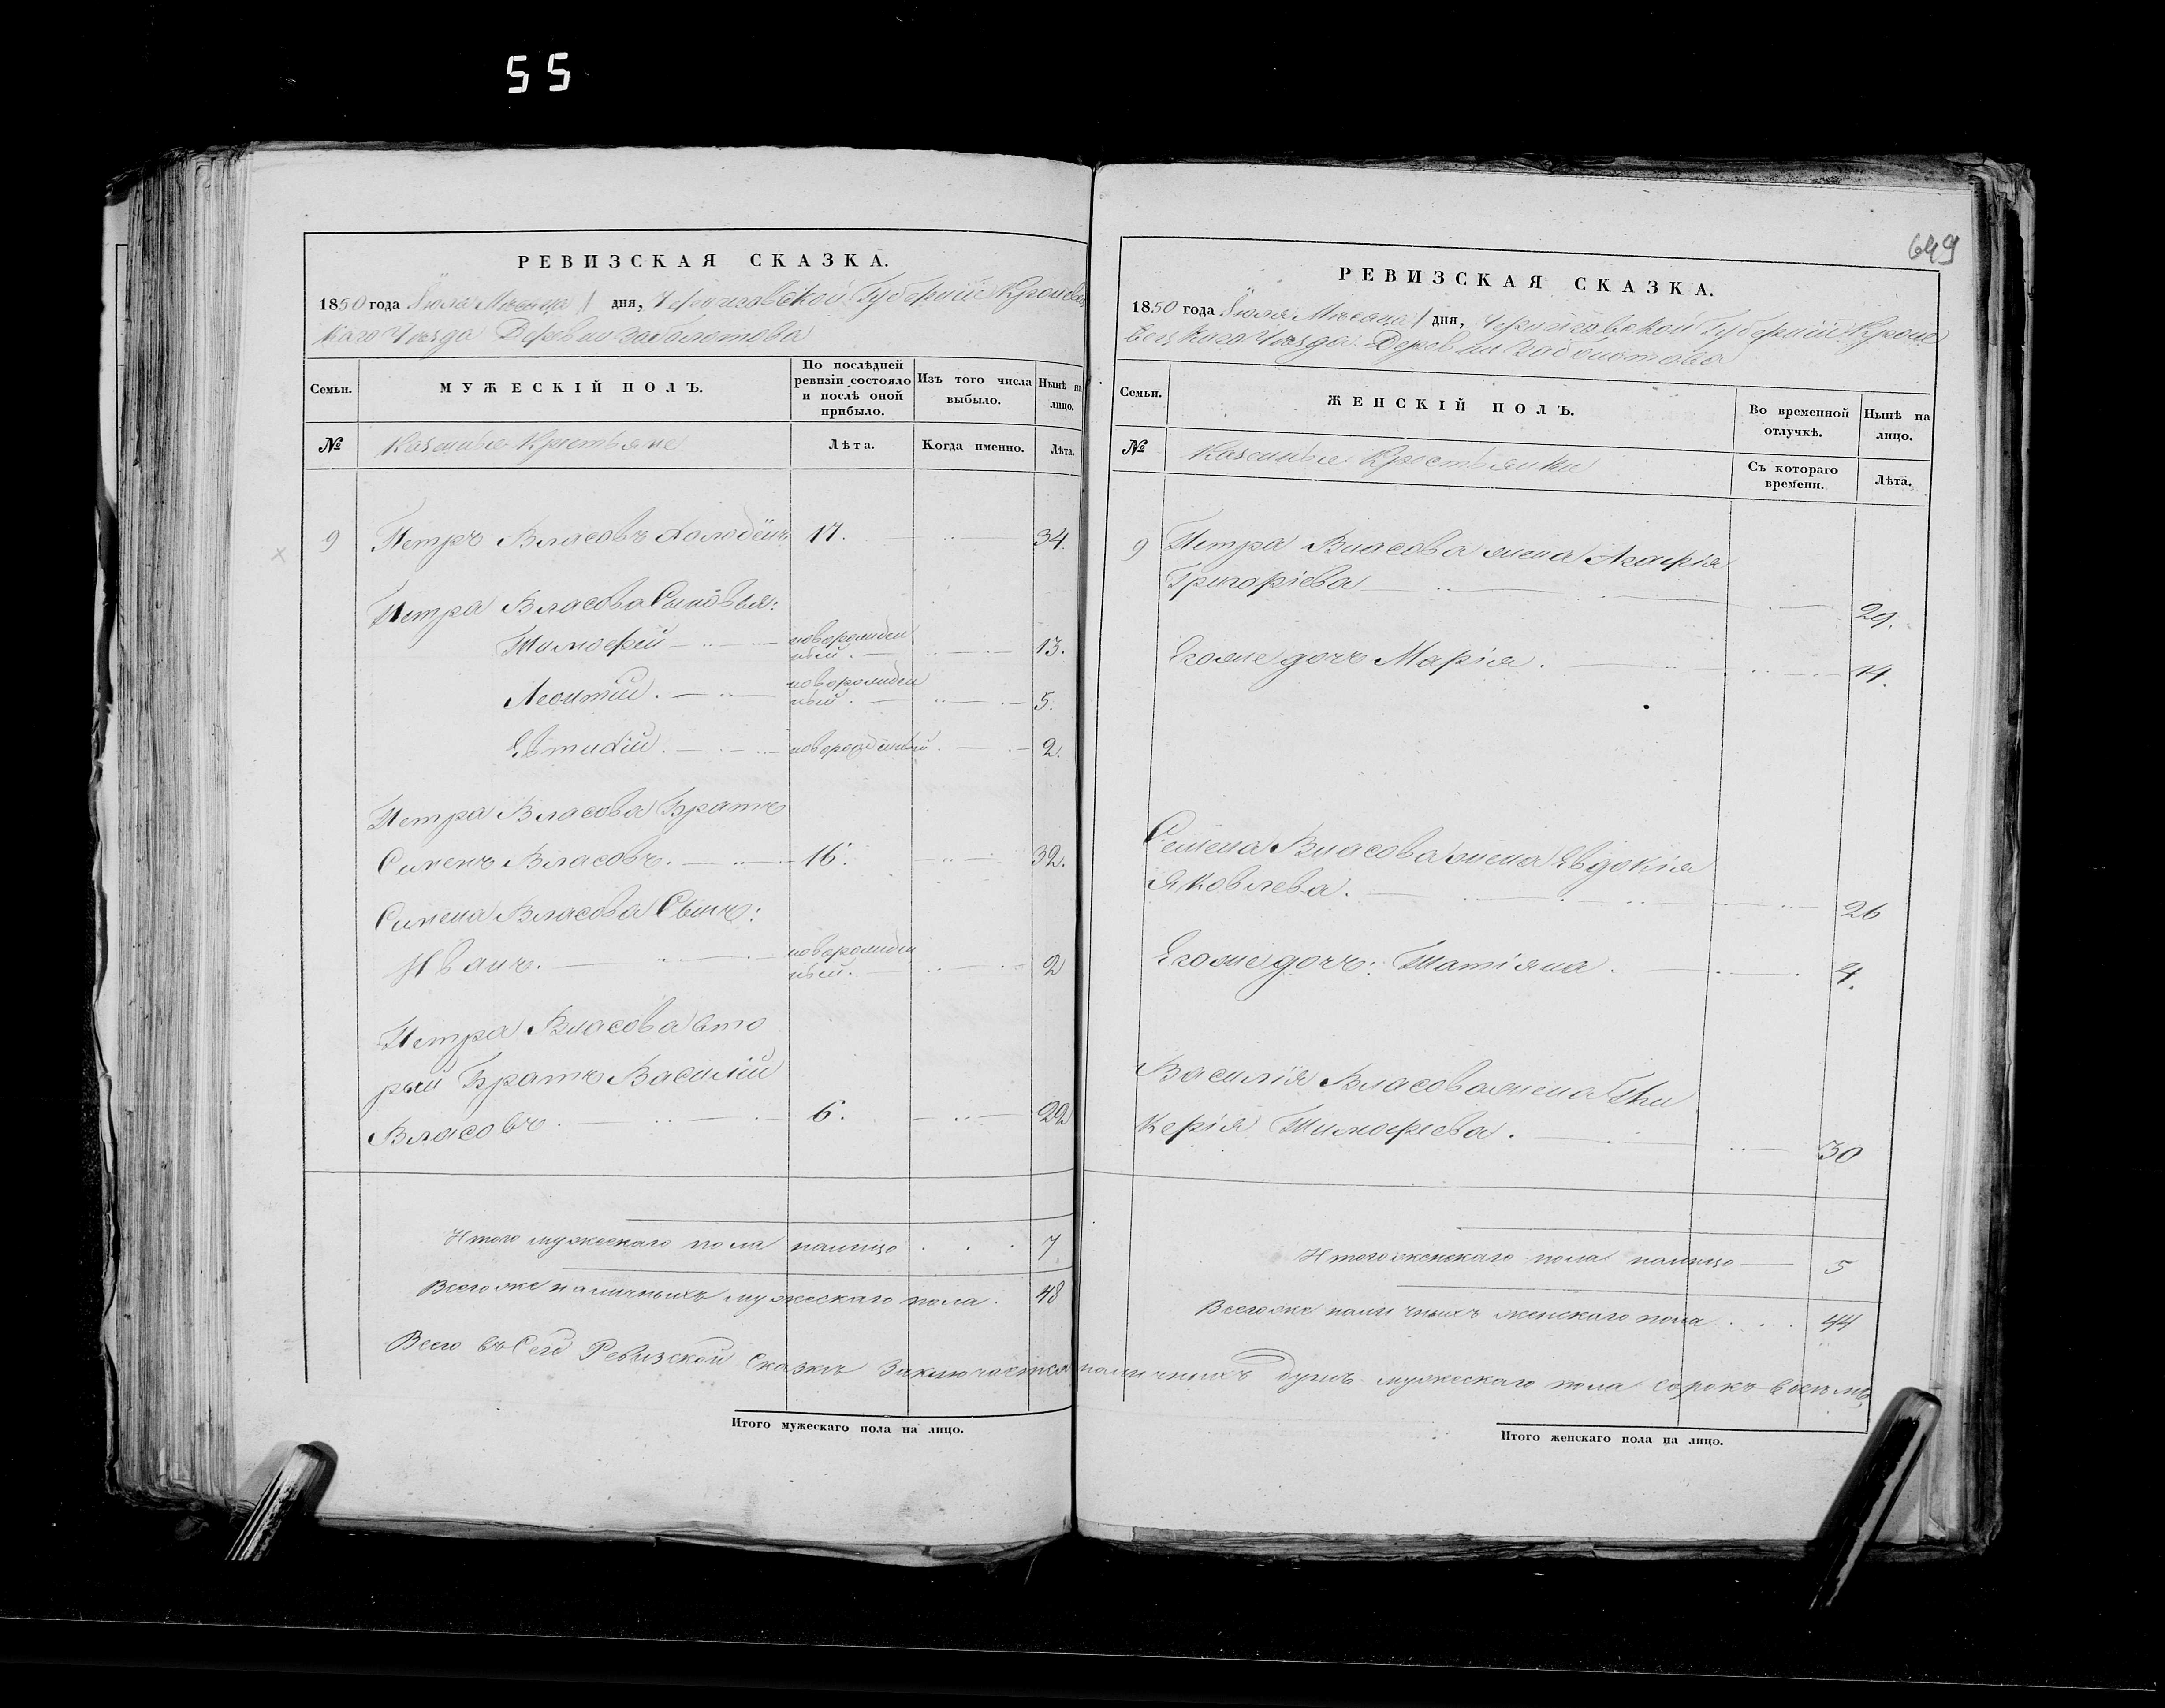 55
РЕВИЗСКАЯ СКАЗКА.
1850 года Іюля Месяца 1 дня, Черниговской Губерніи Кролевец
каго Уезда Деревни Заболотова
Семьи.
МУЖЕСКІЙ ПОЛЪ.
По послѣдней ревизіи состояло и послѣ оной прибыло.
Изъ того числа выбыло.
Нынѣ на лицо.
№
Казенные Крестьяне
Лѣта.
Когда именно.
Лѣта.
9 Петръ Власовъ 17. 34.
Петра Власова Сыновья:
Тимофей новорожден
ный. 13.
Леонтий новорожден
ный. 5.
Евтихій новорожденный. 2.
Петра Власова Братъ
Сименъ Власовъ. 16. 32.
Симена Власова Сынъ:
Иванъ. новорожден
ный. 2
Петра Власова вто
рый Братъ Василій
Власовъ. 6. 22
Итого мужескаго пола налицо 7
Всего же наличныхъ мужескаго пола. 48
Всего въ Сей Ревизской Сказкѣ Заключается наличныхъ душъ мужескаго пола сорокъ восемь
Итого мужескаго пола на лицо.
649
РЕВИЗСКАЯ СКАЗКА.
1850 года Іюля Месяца 1 дня, Черниговской Губерніи Кроле
вецкаго Уезда Деревни Заболотова
Семьи.
ЖЕНСКІЙ ПОЛЪ.
Во временной отлучкѣ.
Нынѣ на лицо.
№
Казенные Крестьянки
Съ котораго времени.
Лѣта.
9 Петра Власова жена Агафія
Григоріева 29.
Его же дочь Марія. 14.
Семена Власова жена Евдокія
Яковлева. 26
Его же дочь: Татіяна. 4.
Василія Власова жена Гли
керія Тимофеева. 30
Итого женскаго пола налицо 5
Всего же наличныхъ женскаго пола 44
Итого женскаго пола на лицо.